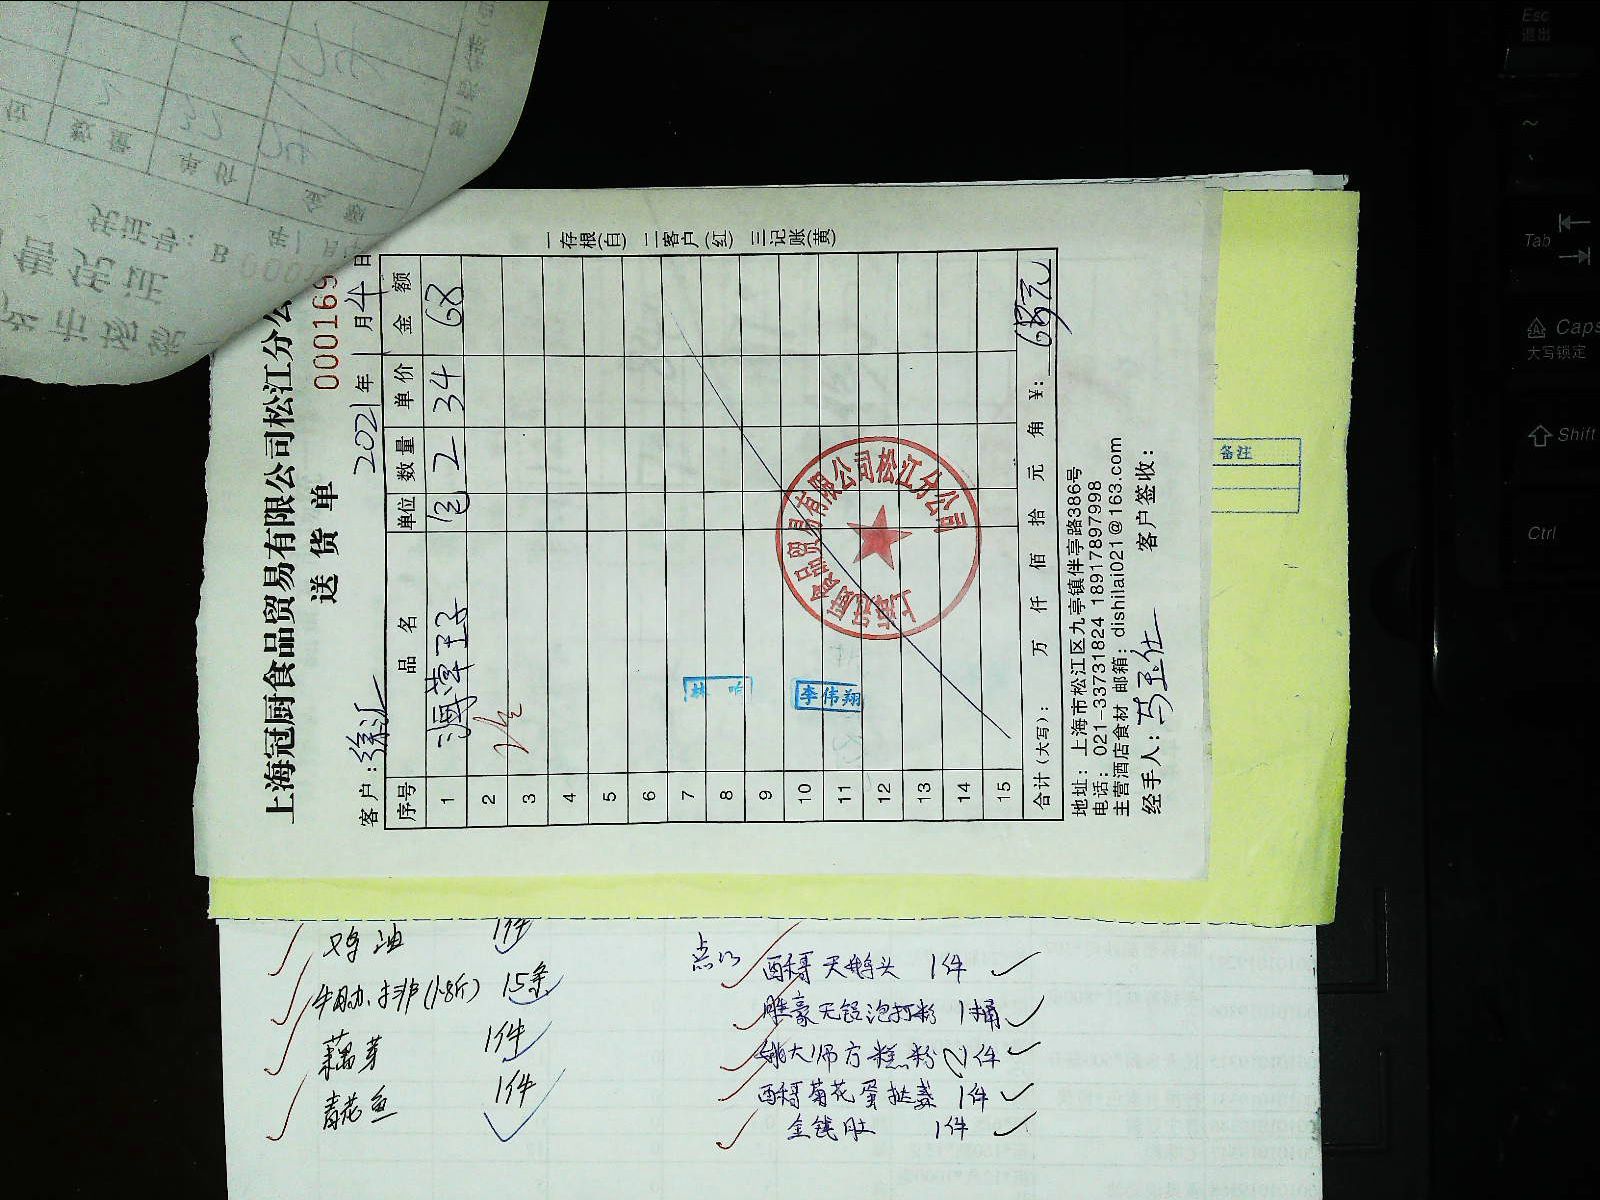 上海冠厨食品贸易有限公司松江分公
送货单
000169
客户:徐汇
2021年1月4日
序号 品名 单位 数量 单价 金额
1 海草王子 包 2 34 68
2
3
4
5
6
7
8
9
10
11
12
13
14
15
李伟翔
上海冠厨食品贸易有限公司松江分公司
合计(大写): 万 仟 佰 拾 元 角 ¥: 68元
一存根(白) 二客户(红) 三记账(黄)
地址:上海市松江区九亭镇伴亭路386号
电话:021-33731824 18917897998
主营酒店食材 邮箱:dishilai021@163.com
经手人: 客户签收:
备注
鸡油 1件
牛肋排(1.8斤) 15条
藕芽 1件
青花鱼 1件
点心 酥哥天鹅头 1件
雕豪无铝泡打粉 1桶
姚大师方糕粉 1件
酥哥菊花蛋挞盏 1件
金钱肚 1件
售凭证
凭证号: B
数量
单价
金额
Esc
退出
Tab
Caps
大写锁定
Shift
Ctrl